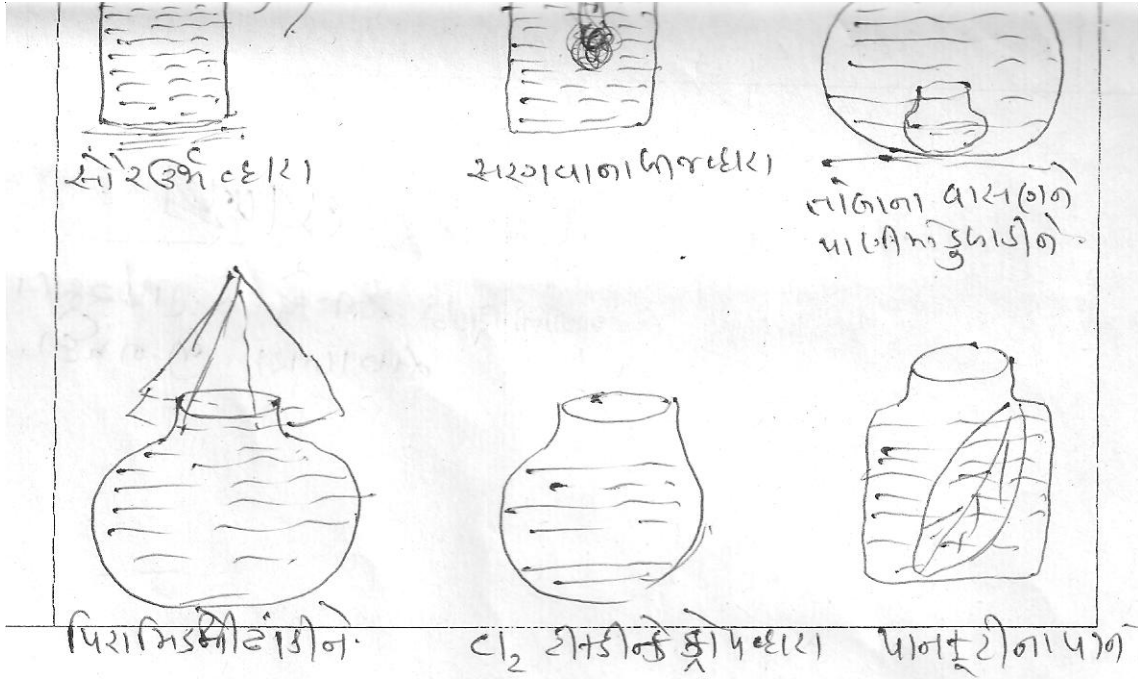 સૌરઉર્જા વ્દારા
સરગવાના બીજ વ્દારા
તાંબાના વાસણને
પાણીમાં ડુબાડીને.
પિરામિડથી ઢાંકીને.
Cl₂ વ્દારા
પાનફૂટીના પાને